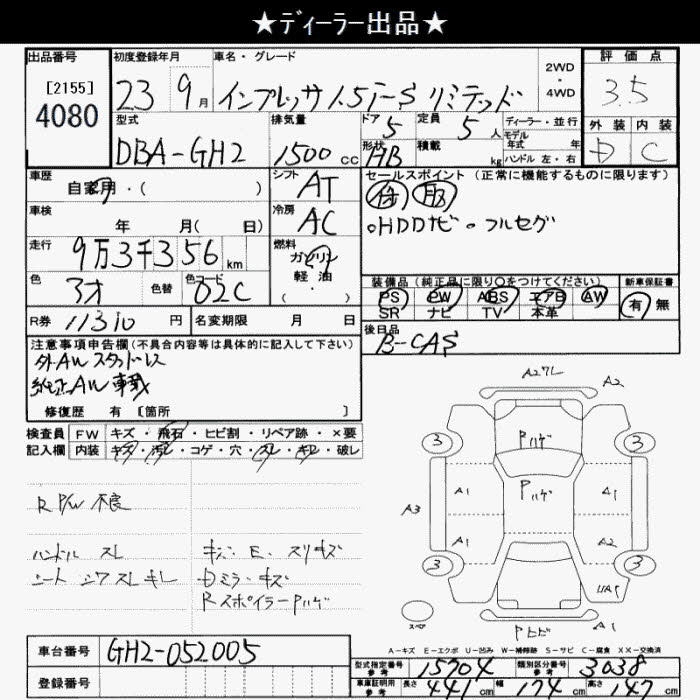 ★ディーラー出品★
出品番号
[2155]
4080
初度登録年月
23 9月
車名・グレード
インプレッサ 1.5i-S リミテッド
2WD
・
4WD
評価点
3.5
型式
DBA-GH2
排気量
1500 cc
ドア
5
定員
5人
ディーラー・並行
モデル
年式 年
形状
HB
積載
kg
ハンドル 左・右
外装
D
内装
C
車歴
自家用・( )
シフト
AT
セールスポイント(正常に機能するものに限ります)
車検
年 月( 日)
冷房
AC
。HDDナビ 。フルセグ
走行
9万3千356 km
燃料
ガソリン
軽油
( ・ )
色
色替
色コード
02C
装備品(純正品に限り○をつけてください)
PS PW ABS エアB AW
SR ナビ TV 本革
新車保証書
有 無
R券
11310 円
名変期限 月 日
後日品
B-CAS
注意事項申告欄(不具合内容等は具体的に記入して下さい)
外AW スタッドレス
純正AW 車載
修復歴 有 [箇所 ]
検査員
記入欄
FW キズ・飛石・ヒビ割・リペア跡・×要
内装 キズ・汚レ・コゲ・穴・スレ・キレ・破レ
R P/W 不良
ハンドル スレ
シート シワ スレ キレ
キズ・E・スリキズ
Dミラーキズ
RスポイラーPハゲ
A2フレ
A2
Pハゲ
3
3
Pハゲ
A1
A1
A3
A1
A2
3
3
スペア
A1
A-キズ E-エクボ U-凹み W-補修跡 S-サビ C-腐食 XX-交換済
車台番号
GH2-052005
登録番号
型式指定番号
参考
15704
類別区分番号
参考
3038
車庫証明用
参考
長さ 441 cm
幅 174 cm
高さ 147 cm